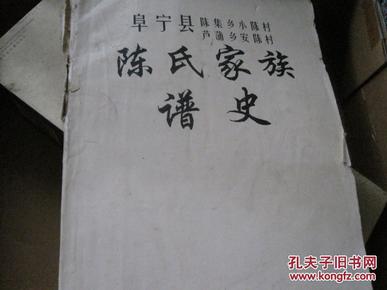 阜宁县 陈集乡小陈村
芦蒲乡安陈村
陈氏家族
谱史
孔夫子旧书网